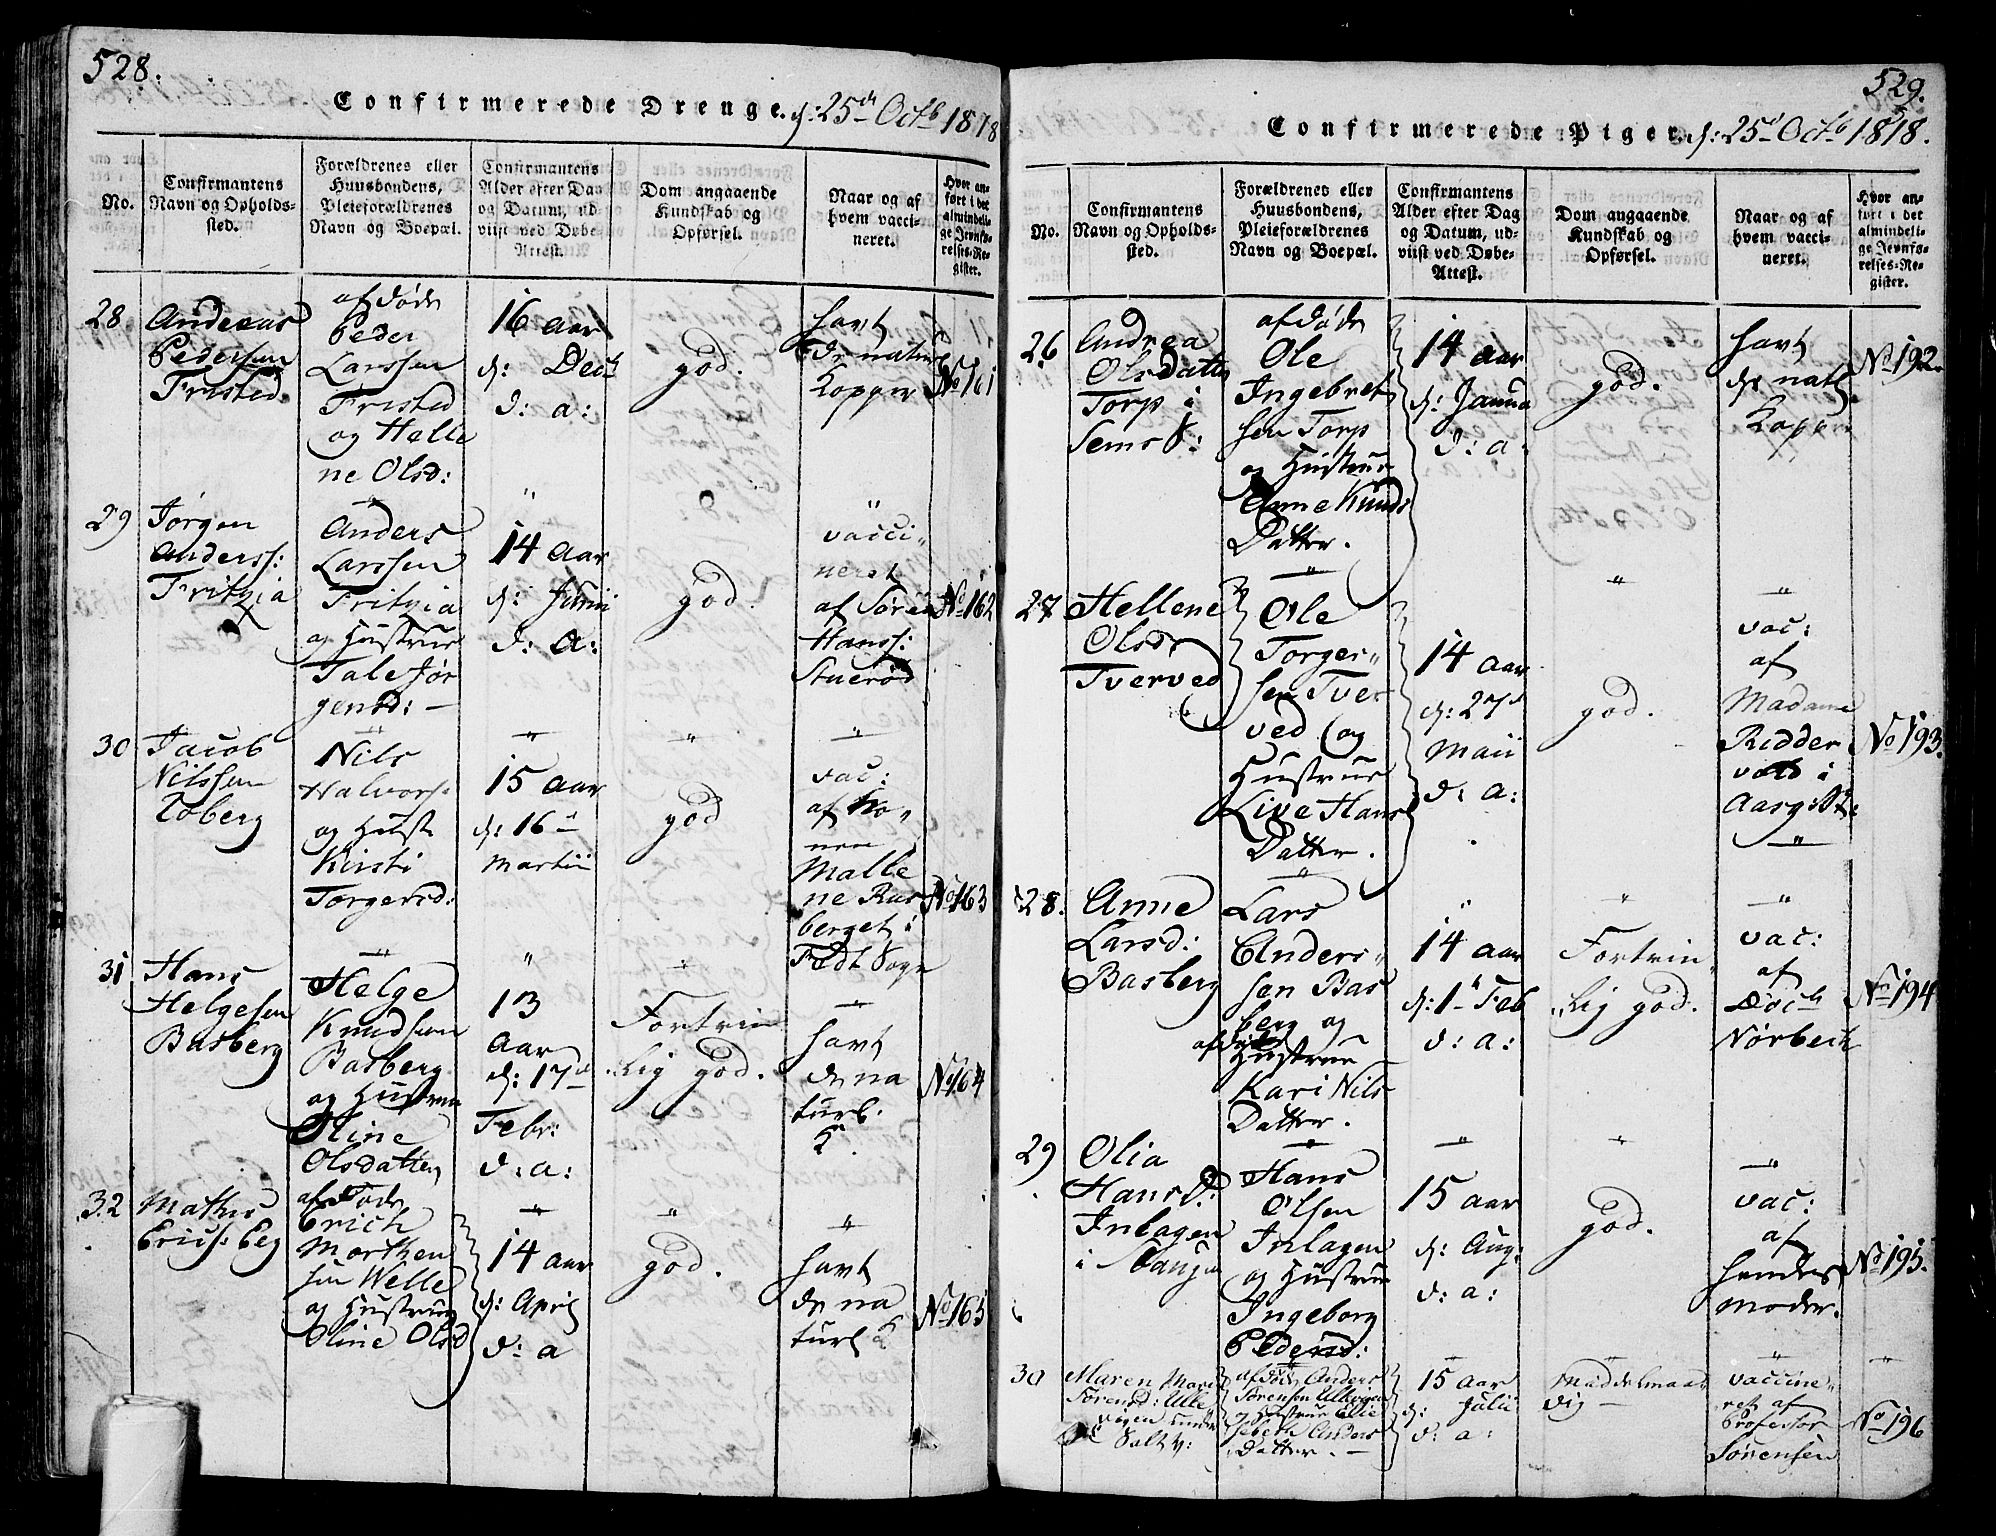 528.
Confirmerede Drenge. d: 25de Octb 1818
No.
Confirmantens
Navn og Opholds-
sted.
Forældrenes eller
Huusbondens,
Pleieforældrenes
Navn og Boepæl.
Confirmantens
Alder efter Dag
og Datum, ud-
viist ved Døbe-
Attest.
Dom angaaende
Kundskab og
Opførsel.
Naar og af
hvem vacci-
neret.
Hvor an-
ført i det
almindeli-
ge Jevnfø-
relses-Re-
gister.
28
Andreas
Pedersen
Fristed.
afdøde
Peder
Larssen
Fristed
og Helle
ne Olsd:
16 aar
d: Decb
d: a:
god.
havt
de naturl
Kopper
No 161
29
Jørgen
Anderss:
Fritzia
Anders
Larssen
Fritzia
og Hustrue
Tale Jør
gensd: —
14 aar
d: Junii
d: a:
god.
vacci„
neret
af Søren
Hanss:
Stuerød
No 162
30
Jacob
Nilssen
Roberg
Nils
Halvors:
og Hust
Kirsti
Torgersd:
15 aar
d: 16
Martii
god
vac:
af Ko„
nen
Malle
ne Ras
berget i
Fedt Sogn
No 163
31
Hans
Helgesen
Basberg
Helge
Knudsen
Basberg
og Hustrue
Oline
Olsdatter
13
Aar
d: 17d
Febr:
d: a:
Fortrin
lig god.
havt
de na
turl.
K.
No 164
32
Mathis
Erics: Eeg
afdøde
Erich
Morthen
sen Welle
og Hustrue
Oline Olsd
14 aar
d: April
d: a
god.
havt
de na
turl K
No 165
529.
Confirmerede Piger. d: 25d Octb 1818.
No.
Confirmantens
Navn og Opholds-
sted.
Forældrenes eller
Huusbondens,
Pleieforældrenes
Navn og Boepæl.
Confirmantens
Alder efter Dag
og Datum, ud-
viist ved Døbe-
Attest.
Dom angaaende
Kundskab og
Opførsel.
Naar og af
hvem vacci-
neret.
Hvor an-
ført i det
almindeli-
ge Jevnfø-
relses-Re-
gister.
26
Andrea
Olsdatter
Torp i
Sems S:
afdøde
Ole
Ingebret
sen Torp
og Hustrue
Anne Knuds
Datter.
14 aar
d: Janua
d: a:
god.
havt
de natl.
Kopper
No 192.
27
Hellene
Olsd
Tverved
Ole
Torger„
sen Tver
ved og
Hustrue
Live Hans
Datter.
14 aar
d: 27d
Maii
d: a:
god.
vac:
af
Madame
Ridder
vold i
Aasgstr:
No 193.
28.
Anne
Larsd:
Basberg
Lars
Anders„
sen Bas
berg og
afdøde
Hustrue
Kari Nils
Datter.
14 aar
d: 1d Feb
d: a:
Fortrin„
lig god.
vac:
af
Doch
Nørbech
No 194
29
Olia
Hansd:
Inlagen
i
Hans
Olsen
Inlagen
og Hustrue
Ingeborg
Pedersd:
15 aar
d: Aug:
d: a:
god.
vac:
af
hendes
moder.
No 195.
30
Maren Marie
Sørensd: Ulle
vegen under
Salt v:
afdøde Anders
Sørensen Ullevigen
og Hustrue Elie
sebeth Anders
Datter. —
15 aar
d: Julii
d: a:
Maddelmaa
dig —
vaccine„
ret af
Professor
Sørensen
No 196